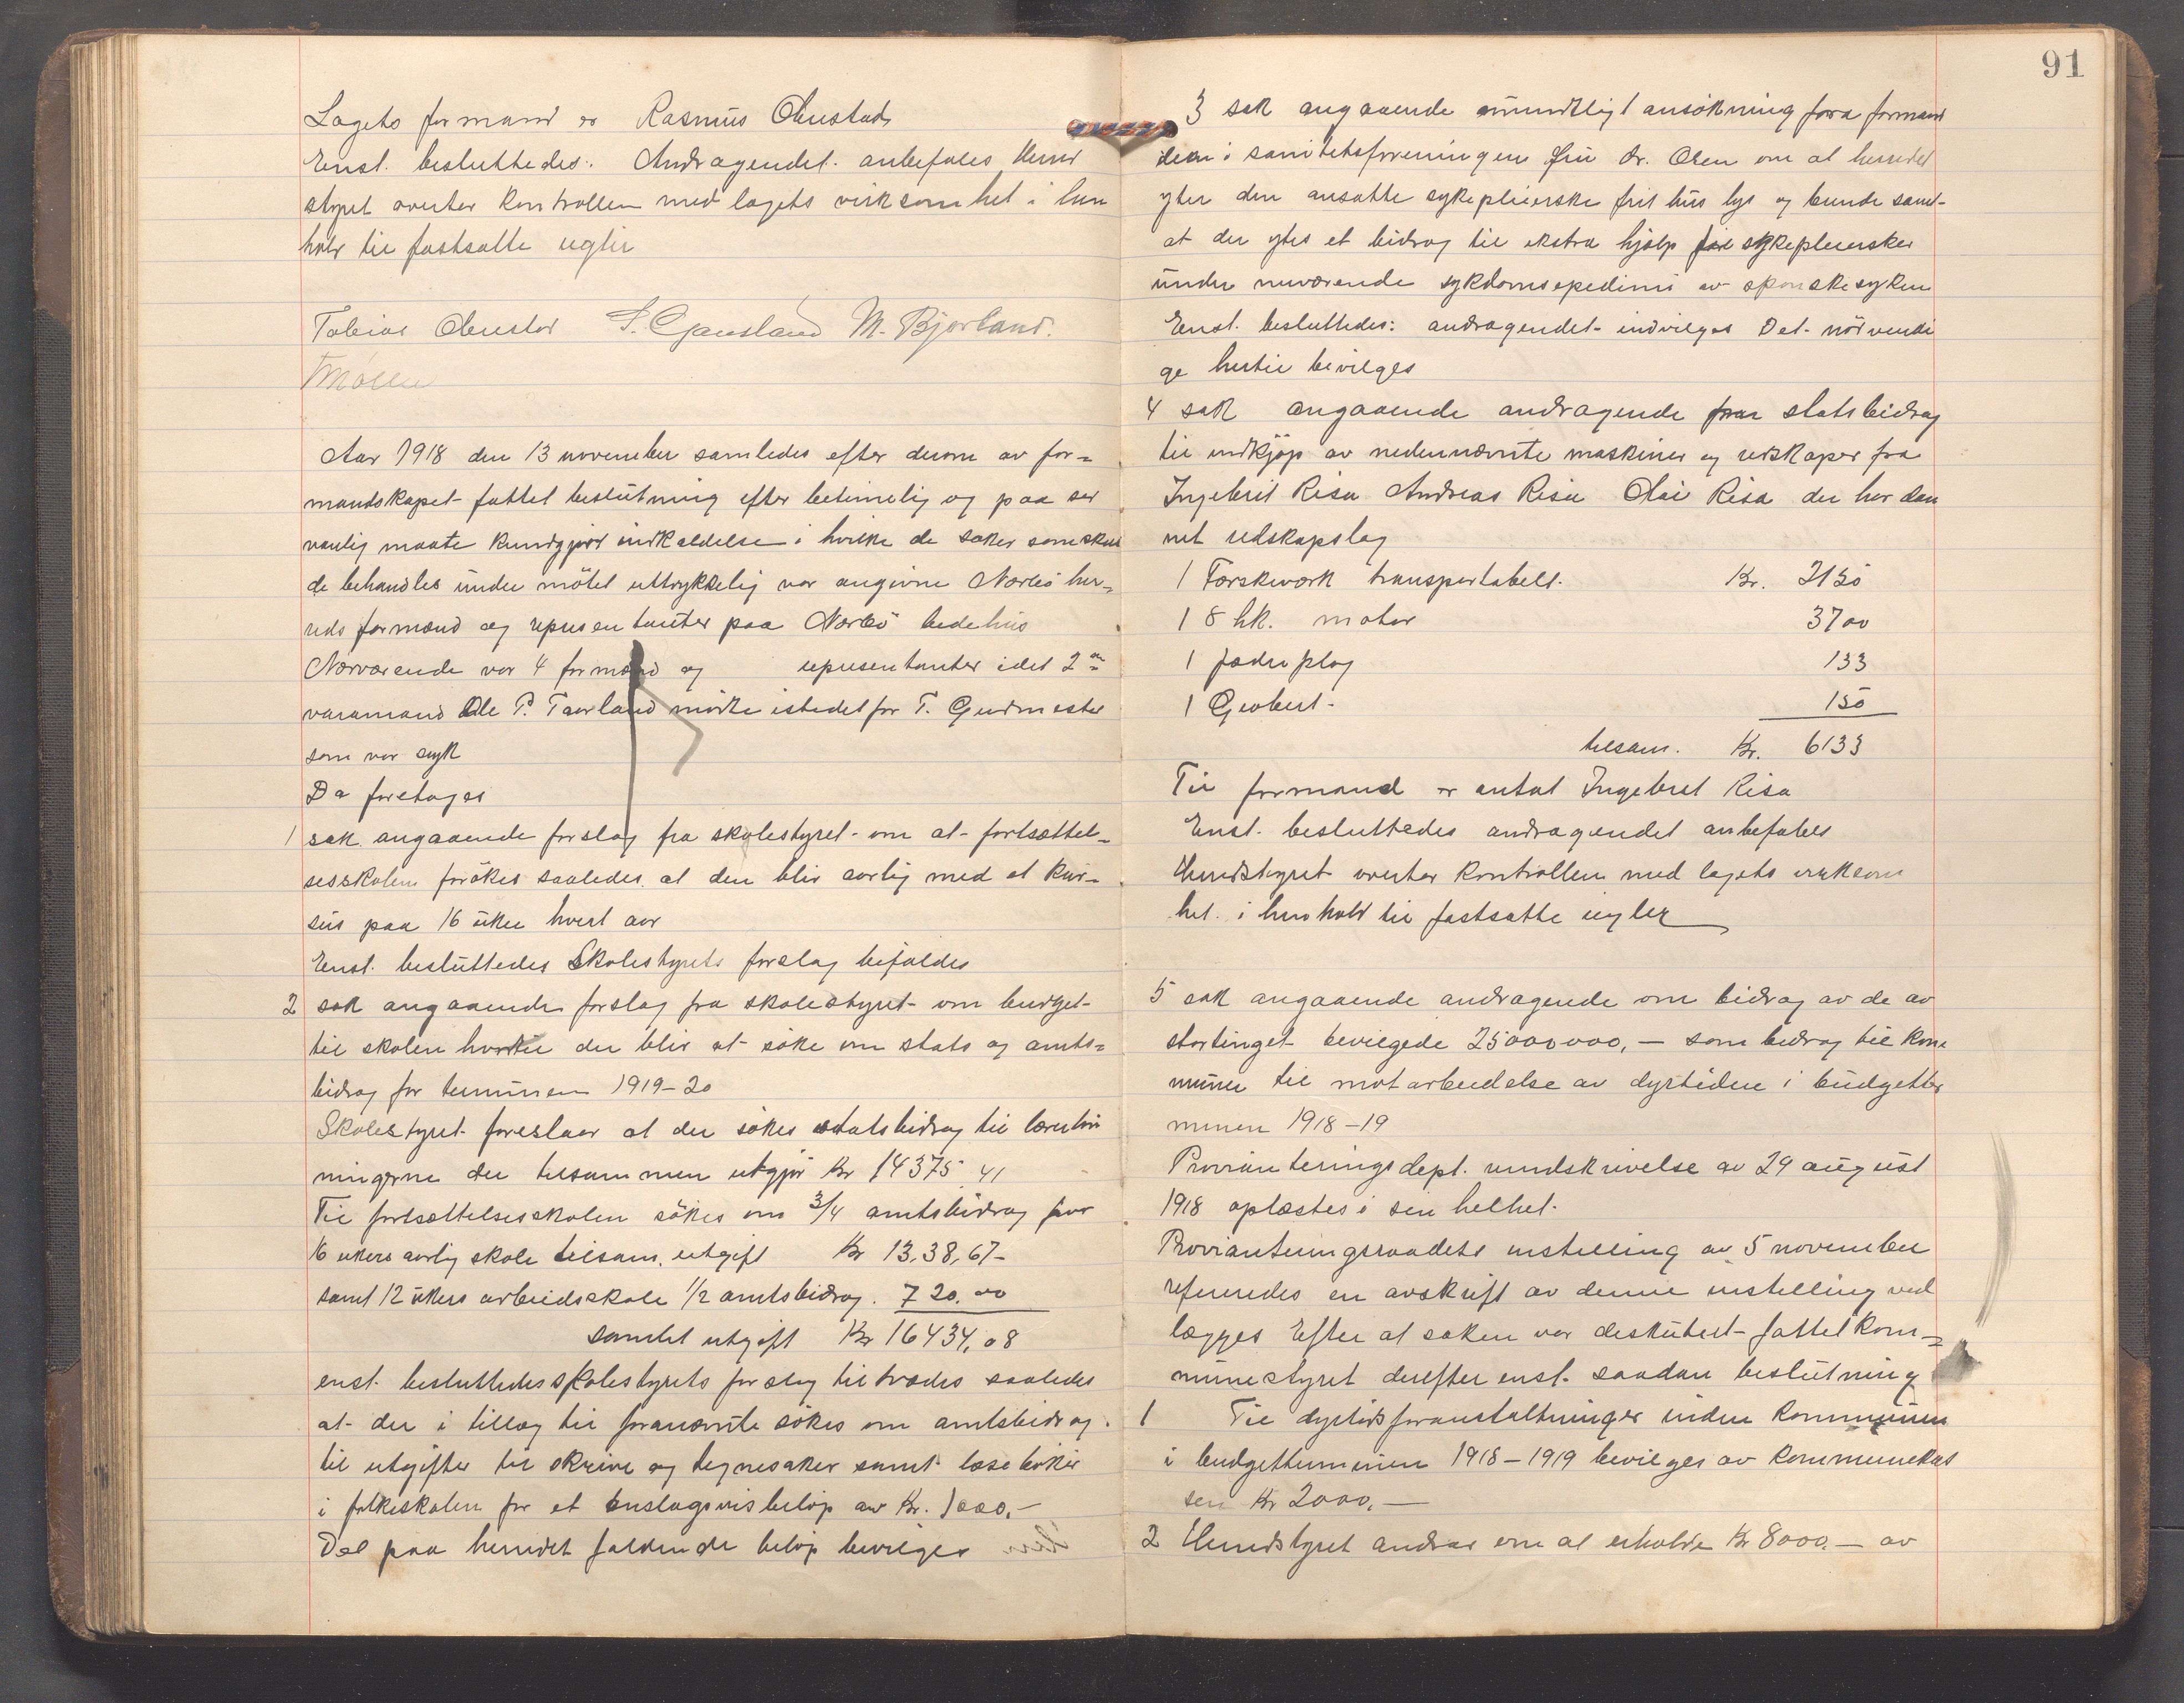 Lagets formand er Rasmus Obrestad
Enst. besluttedes: Andragendet anbefales Herred
styret overtar Kontrollen med lagets virksomhet i hen
hold til fastsatte regler
Tobias Obrestad M. Bjorland.
Aar 1918 den 13 november samledes efter derom av for=
mandskapet fattet beslutning efter betimelig og paa sed
vanlig maate kundgjort indkaldelse i hvilke de saker som skul
de behandles under møtet uttrykkelig var angivne Nærbø her=
reds formænd og representanter paa Nærbø bedehus
Nærværende var 4 formænd og representanter idet 2den
varamand Ole P. Taarland møtte istedet for T. Grudmester
som var syk
Da foretages
1 sak angaaende forslag fra skolestyret om at fortsættel=
sesskolen forøkes saaledes at den blir aarlig med et kur=
sus paa 16 uker hvert aar
Enst. besluttedes Skolestyrets forslag bifaldes
2 sak angaaende forslag fra skolestyret om budget
til skolen hvortil der blir at søke om stats og amts=
bidrag for terminen 1919-20
Skolestyret foreslaar at der søkes statsbidrag til lærerløn
ningerne der tilsammen utgjør Kr 14375,41
Til fortsættelsesskolen søkes om 3/4 amtsbidrag for
16 ukers aarlig skole tilsam. utgift Kr 13,38,67-
samt 12 ukers arbeidsskole 1/2 amtsbidrag. 720.00
samlet utgift Kr 16434,08
enst. besluttedes skolestyrets forslag tiltrædes saaledes
at der i tillæg til forannævnte søkes om amtsbidrag
til utgifter til skrive og tegnesaker samt læsebøker
i folkeskolen for et anslagsvis beløp av Kr. 1000.-
Det paa herredet faldende beløp bevilges
91
3 sak angaaende mundtligt ansøkning fra formand
den i sanitetsforeningen fru dr. Olsen om at herredet
yter den ansatte sykepleierske frit hus lys og brende samt
at der ytes et bidrag til ekstra hjælp for sykepleiersker
under nuværende sykdomsepedimi av spanskesyken
Enst. besluttedes: andragendet indvilges Det nødvendi
ge hertil bevilges
4 sak angaaende andragende fraa statsbidrag
til indkjøp av nedennævnte maskiner og redskaper fra
Ingebrit Risa Andreas Risa Olai Risa der har dan
net redskapslag
1 Tærskværk transportabelt. Kr. 2150
1 8 hk. motor 3700
1 jædreplog 133
1 150
tilsam. Kr. 6133
Til formand er antat Ingebret Risa
Enst. besluttedes andragendet anbefales
Herredstyret overtar Kontrollen med lagets virksom
het i henhold til fastsatte regler
5 sak angaaende andragende om bidrag av de av
stortinget bevilgede 25000000,- som bidrag til kom
muner til motarbeidelse av dyrtiden i budgetter
minen 1918-19
Provianteringsdept. rundskrivelse av 29 august
1918 oplæstes i sin helhet.
Provianteringsraadets instilling av 5 november
refereredes en avskrift av denne instelling ved
lægges Efter at saken var diskutert fattet kom=
munestyret derefter enst. saadan beslutning
1 Til dyrtidsforanstaltninger inden Kommunen
i budgetterminen 1918-1919 bevilges av kommunekas
sen Kr 2000.-
2 Herredstyret andrar om at erholde Kr 8000.- av